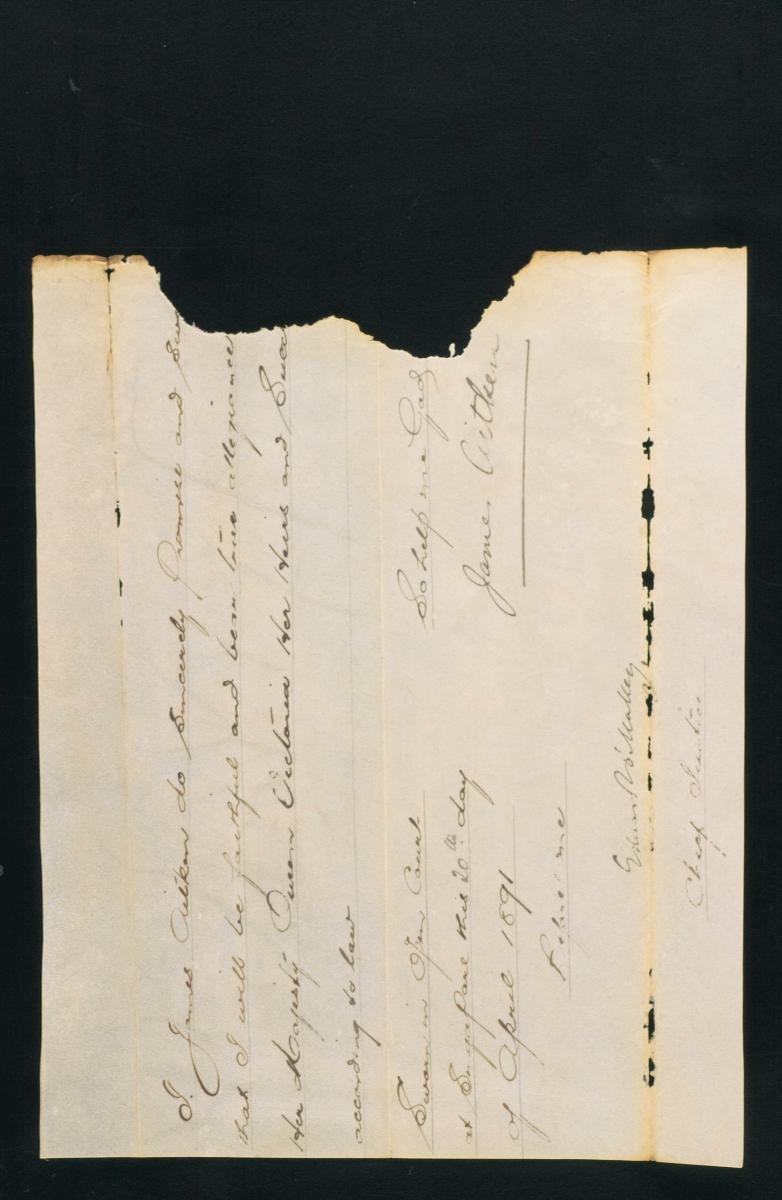 I James Aitken do Sincerely Promise and Swe
that I will be faithful and bear true allegiance
Her Majesty Queen Victoria Her Heirs and Succ
according to law
So help me God
James Aitken
Sworn in Open Court
at Singapore this 20th day
of April 1891
Before me
Edward O'Malley
Chief Justice